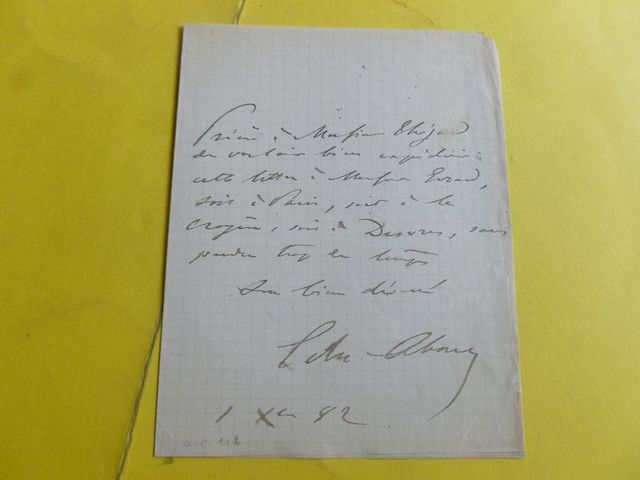 Prière à Monsieur
de vouloir bien expédier
cette lettre à Monsieur
soit à Paris, soit à la
soit à Desvres, sans
perdre trop de temps
Son bien dévoué
Edm About
1 Xbre 82